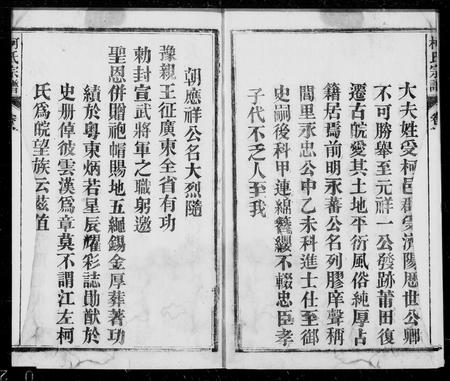 柯氏宗譜
大夫姓受柯邑郡蒙濟陽歷世公卿
不可勝舉至元祥一公發跡莆田復
遷古皖愛其土地平衍風俗純厚占
籍居焉前明永蕃公名列膠庠聲稱
閭里永忠公中乙未科進士仕至御
史嗣後科甲連綿簪纓不輟忠臣孝
子代不乏人至我
朝應祥公名大烈隨
豫親王征廣東全省有功
勅封宣武將軍之職躬邀
聖恩併贈袍帽賜地五繩錫金厚葬著功
績於粵東炳若星辰耀彩誌勛猷於
史冊倬彼雲漢為章莫不謂江左柯
氏為皖望族云茲值
柯氏宗譜